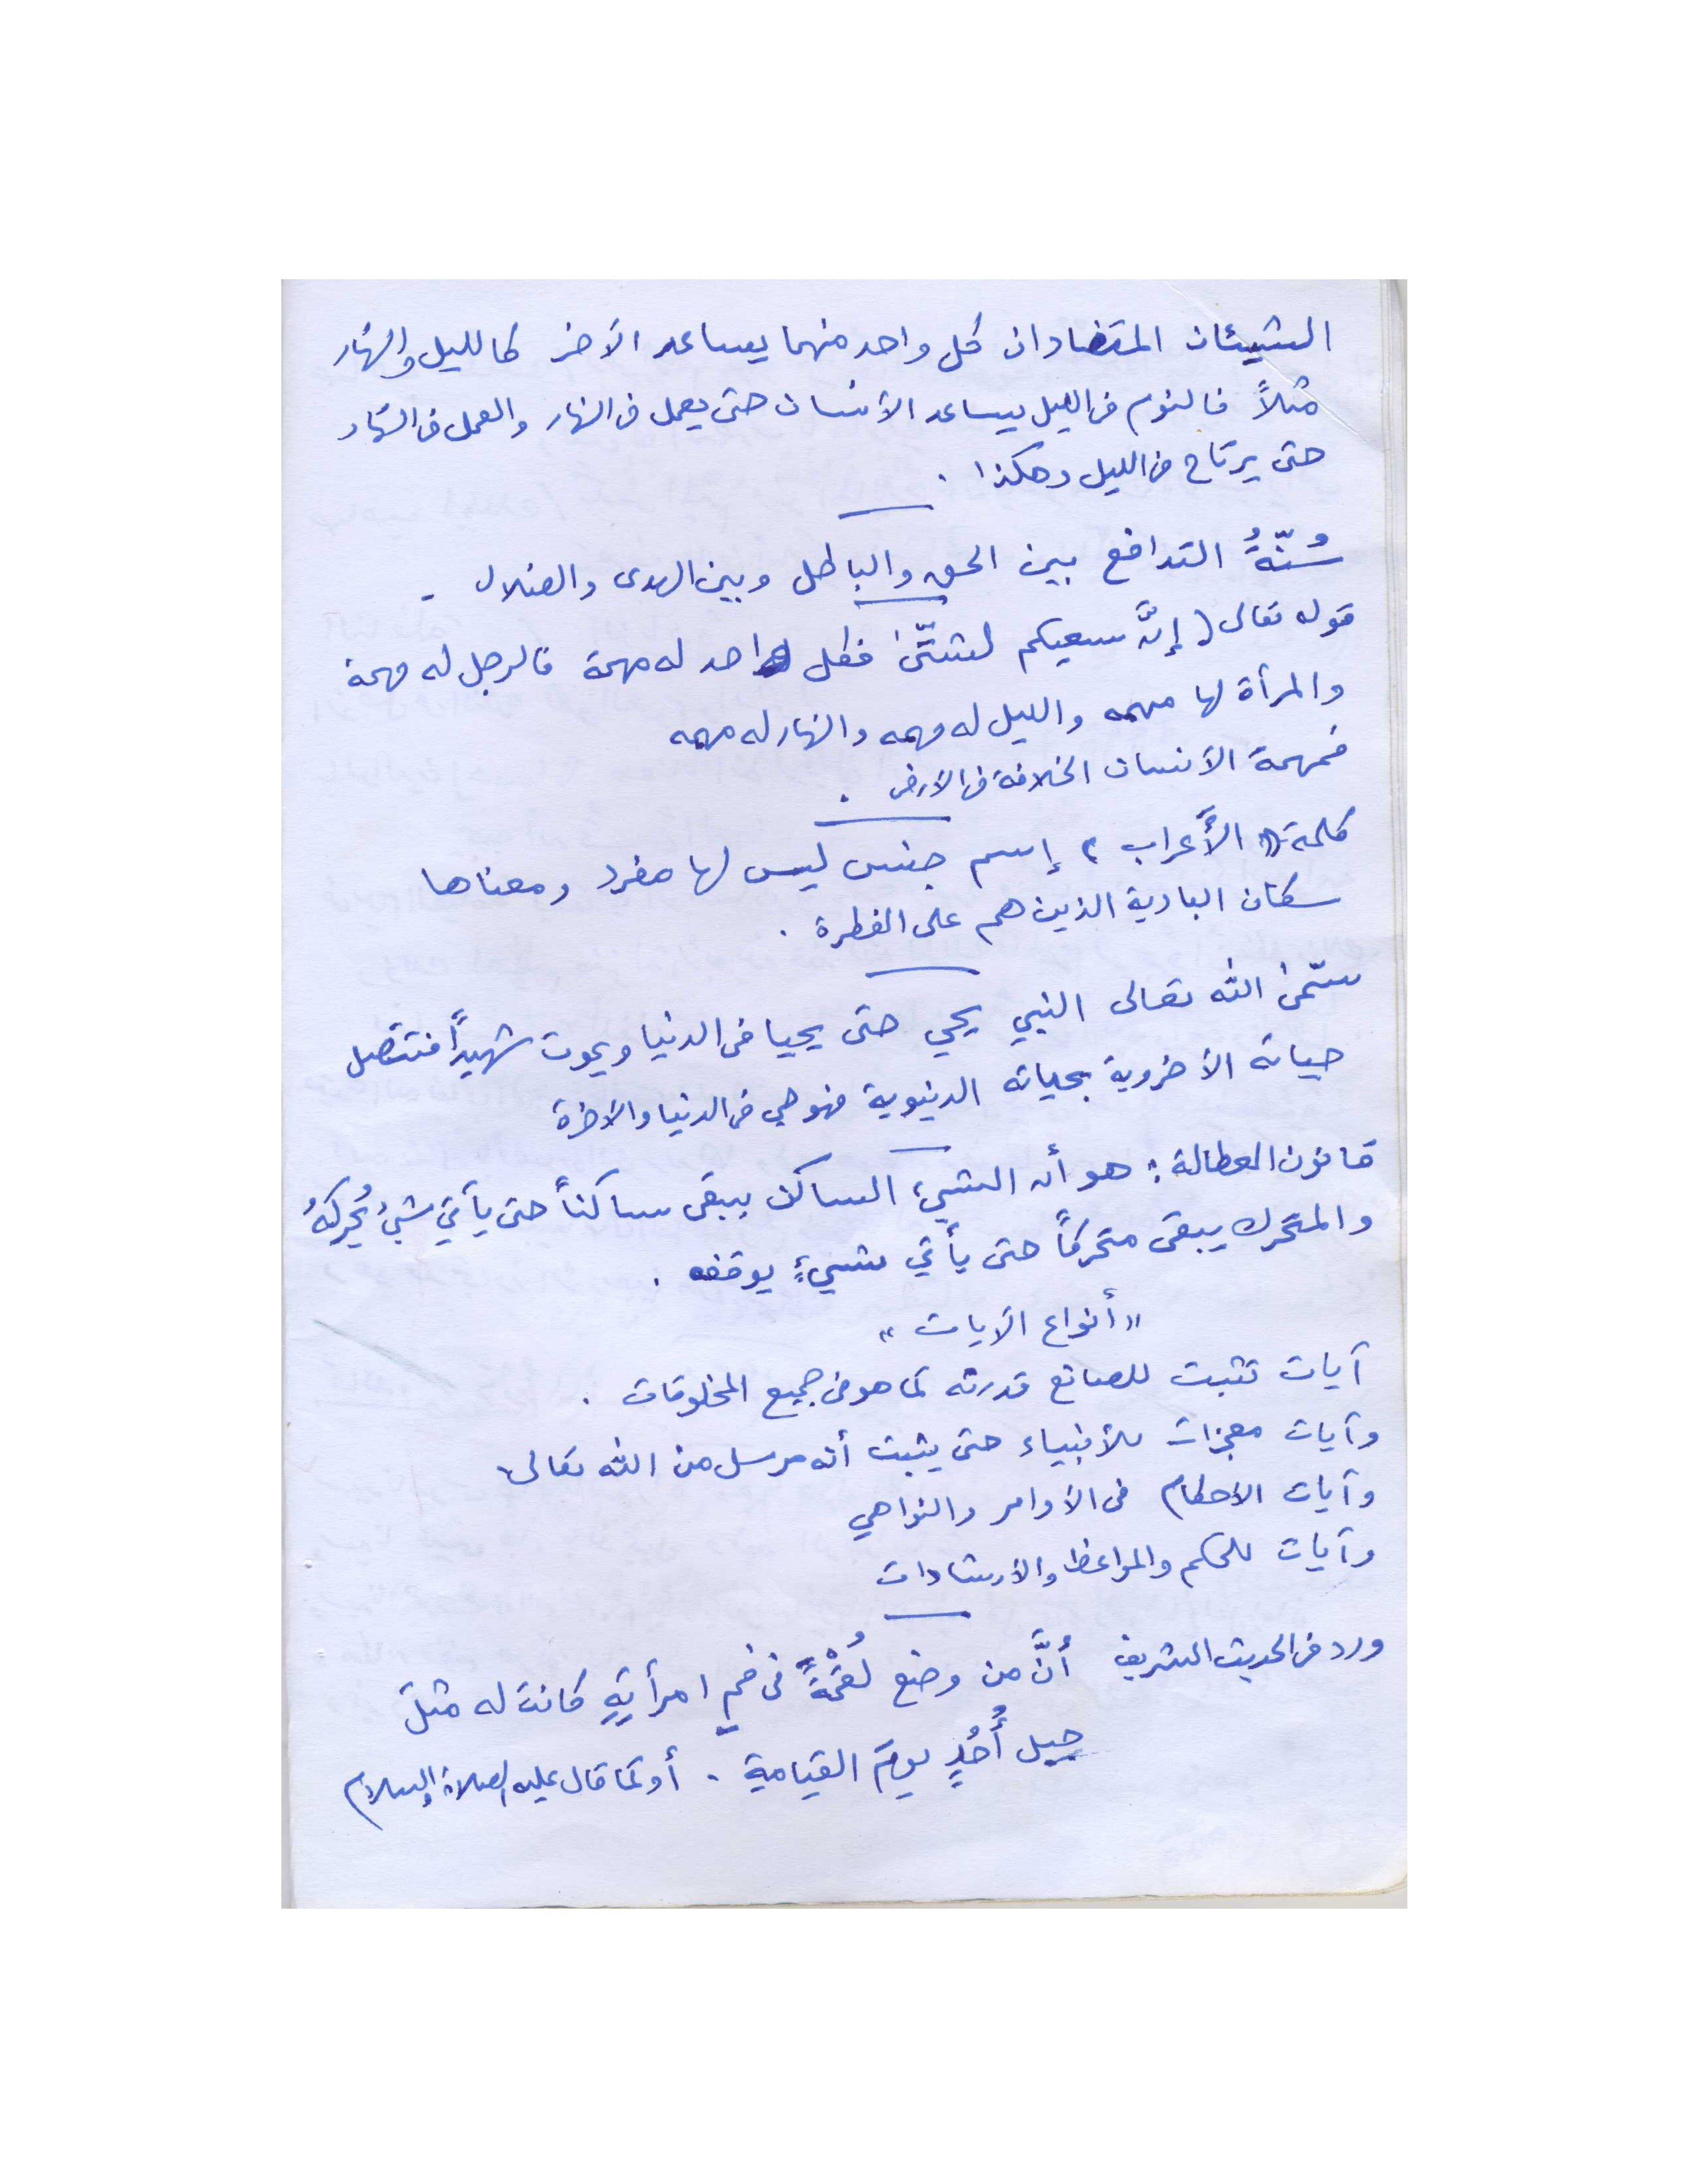 الشيئان المتضادان كل واحد منهما يساعد الآخر كالليل والنهار
مثلاً فالنوم في الليل يساعد الأنسان حتى يعمل في النهار والعمل في النهار
حتى يرتاح في الليل وهكذا .
سُنّةُ التدافع بين الحق والباطل وبين الهدى والضلال -
قوله تعالى ( إنَّ سعيكم لشتّى فكل واحد له مهمة فالرجل له مهمة
والمرأة لها مهمه والليل له مهمه والنهار له مهمه
فمهمة الأنسان الخلافة في الأرض .
كلمة « الأَعراب » إسم جنس ليس لها مفرد ومعناها
سكان البادية الذين هم على الفطرة .
سمّى الله تعالى النبي يحي حتى يحيا في الدنيا ويموت شهيداً فتتصل
حياته الأخروية بحياته الدنيوية فهو حي في الدنيا والآخرة
قانون العطالة : هو أن الشيء الساكن يبقى ساكناً حتى يأتي شيءُ يُحركهُ
والمتحرك يبقى متحركاً حتى يأتي شيءٍ يوقفه .
« أنواع الآيات »
آيات تثبت للصانع قدرته كما هو في جميع المخلوقات .
وآيات معجزات للأنبياء حتى يثبت أنه مرسل من الله تعالى
وآيات الأحكام في الأوامر والنواهي
وآيات للحكم والمواعظ والأرشادات
ورد في الحديث الشريف أنَّ من وضع لُقْمَةً في فمِ امرأتِهِ كانت له مثلَ
جبل أُحُدٍ يومَ القيامةِ . أو كما قال عليه الصلاة والسلام